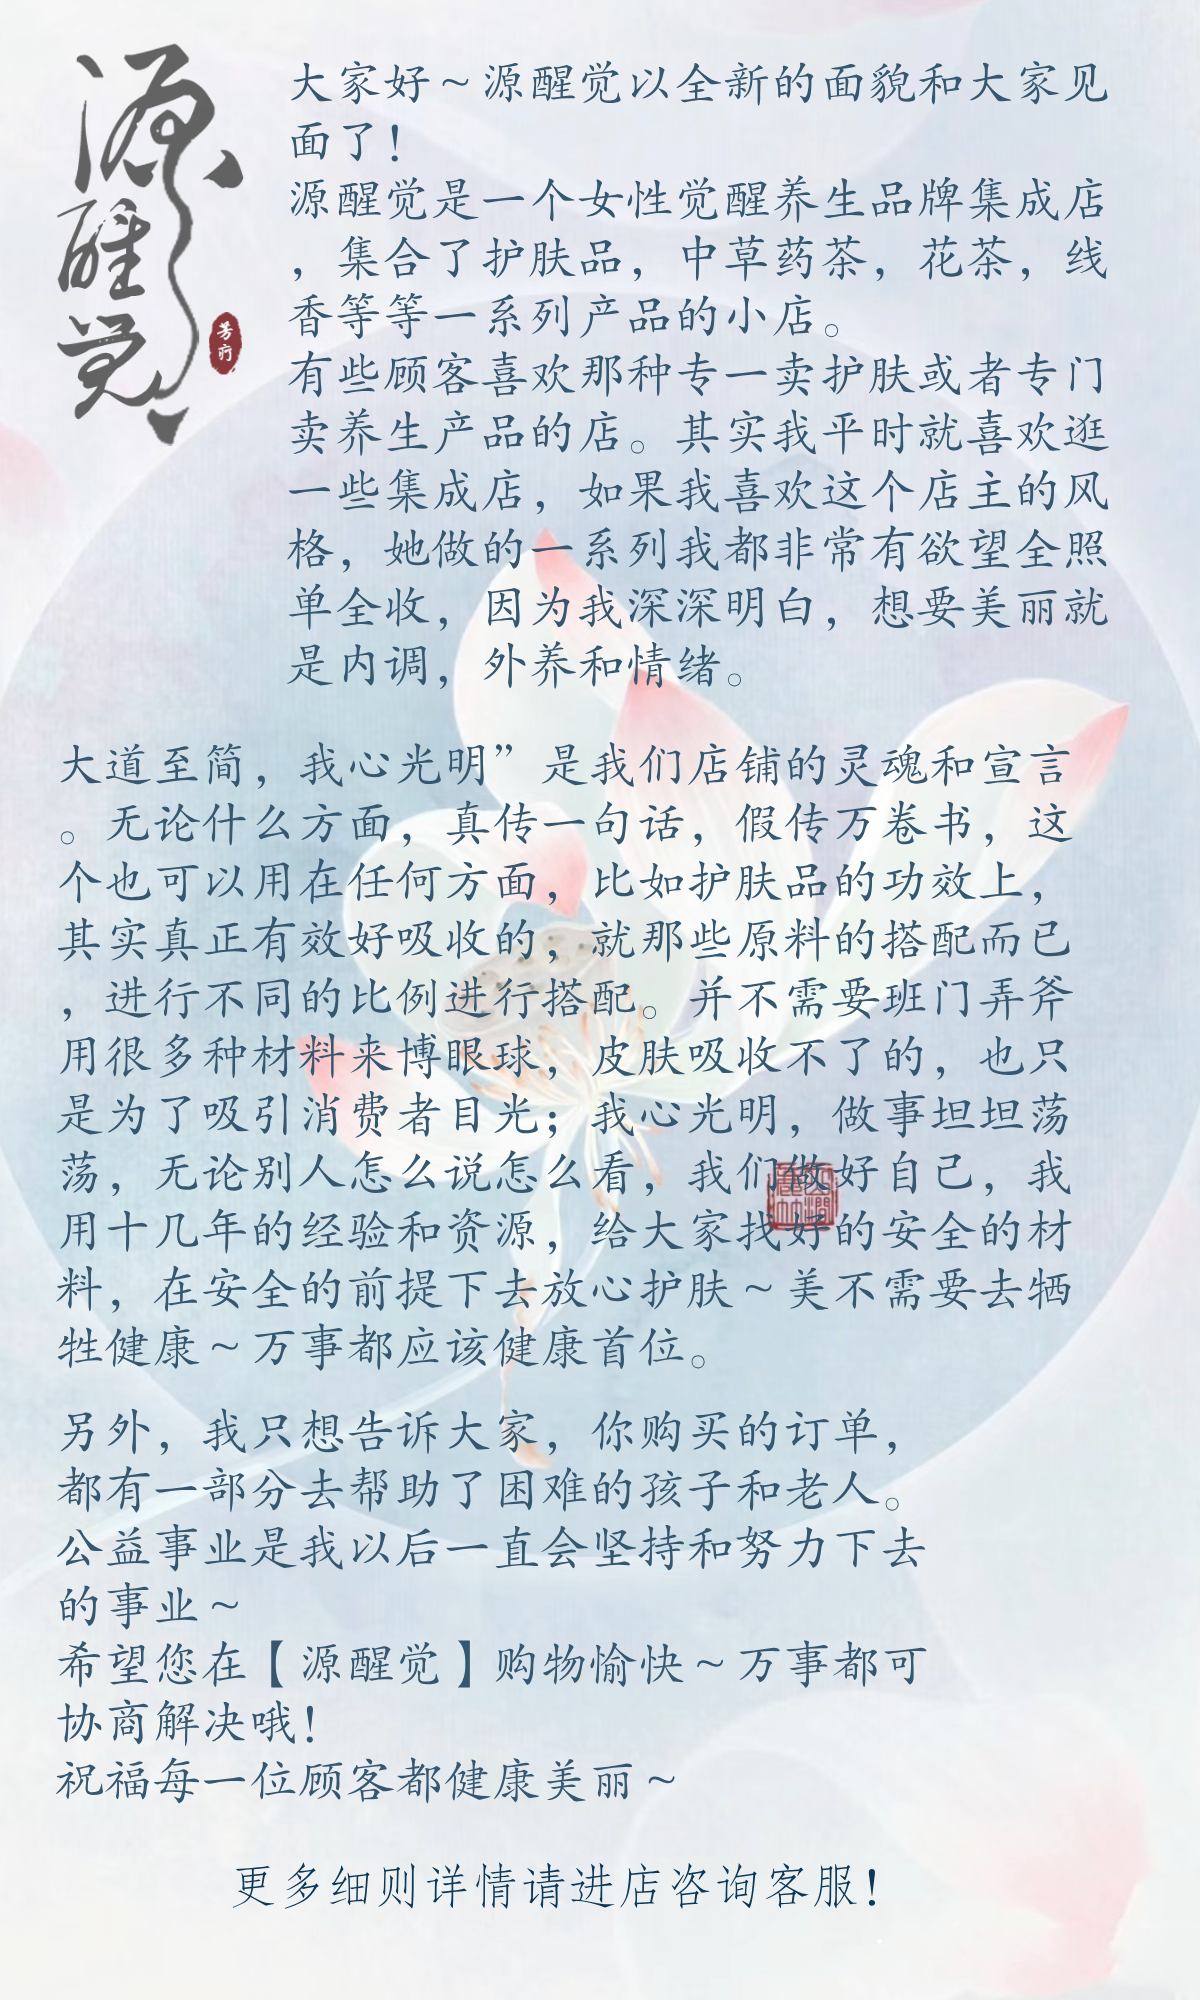 源醒觉
芳疗
大家好～源醒觉以全新的面貌和大家见
面了！
源醒觉是一个女性觉醒养生品牌集成店
，集合了护肤品，中草药茶，花茶，线
香等等一系列产品的小店。
有些顾客喜欢那种专一卖护肤或者专门
卖养生产品的店。其实我平时就喜欢逛
一些集成店，如果我喜欢这个店主的风
格，她做的一系列我都非常有欲望全照
单全收，因为我深深明白，想要美丽就
是内调，外养和情绪。
大道至简，我心光明”是我们店铺的灵魂和宣言
。无论什么方面，真传一句话，假传万卷书，这
个也可以用在任何方面，比如护肤品的功效上，
其实真正有效好吸收的，就那些原料的搭配而已
，进行不同的比例进行搭配。并不需要班门弄斧
用很多种材料来博眼球，皮肤吸收不了的，也只
是为了吸引消费者目光；我心光明，做事坦坦荡
荡，无论别人怎么说怎么看，我们做好自己，我
用十几年的经验和资源，给大家找好的安全的材
料，在安全的前提下去放心护肤～美不需要去牺
牲健康～万事都应该健康首位。
另外，我只想告诉大家，你购买的订单，
都有一部分去帮助了困难的孩子和老人。
公益事业是我以后一直会坚持和努力下去
的事业～
希望您在【源醒觉】购物愉快～万事都可
协商解决哦！
祝福每一位顾客都健康美丽～
更多细则详情请进店咨询客服！